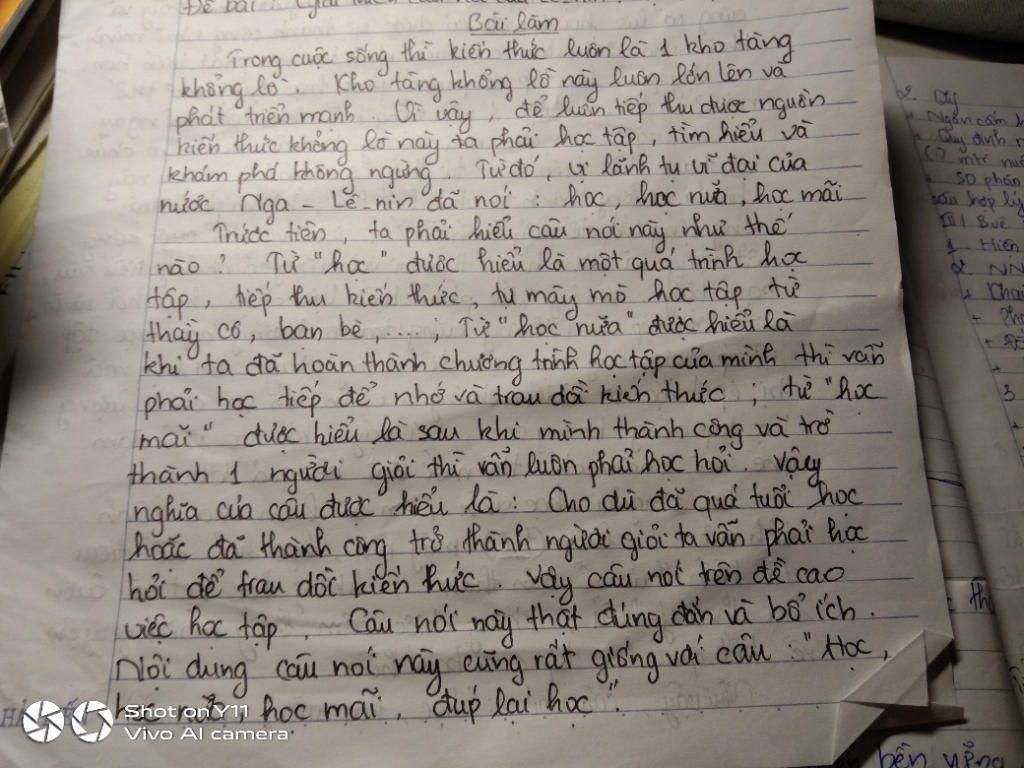 Đề bài
Bài làm
Trong cuộc sống thì kiến thức luôn là 1 kho tàng
khổng lồ. Kho tàng khổng lồ này luôn lớn lên và
phát triển mạnh. Vì vậy, để luôn tiếp thu được nguồn
kiến thức khổng lồ này ta phải học tập, tìm hiểu và
khám phá không ngừng. Từ đó, vị lãnh tụ vĩ đại của
nước Nga - Lê nin đã nói : học, học nữa, học mãi
Trước tiên, ta phải hiểu câu nói này như thế
nào? Từ "học" được hiểu là một quá trình học
tập, tiếp thu kiến thức, tự mày mò học tập từ
thầy cô, bạn bè, ...; Từ "học nữa" được hiểu là
khi ta đã hoàn thành chương trình học tập của mình thì vẫn
phải học tiếp để nhớ và trau dồi kiến thức ; từ "học
mãi" được hiểu là sau khi mình thành công và trở
thành 1 người giỏi thì vẫn luôn phải học hỏi. Vậy
nghĩa của câu được hiểu là : Cho dù đã quá tuổi học
hoặc đã thành công trở thành người giỏi ta vẫn phải học
hỏi để trau dồi kiến thức. Vậy câu nói trên đề cao
việc học tập. Câu nói này thật đúng đắn và bổ ích.
Nội dung câu nói này cũng rất giống với câu : "Học,
học nữa, học mãi, đúp lại học"
Shot on Y11
Vivo AI camera
bền vững